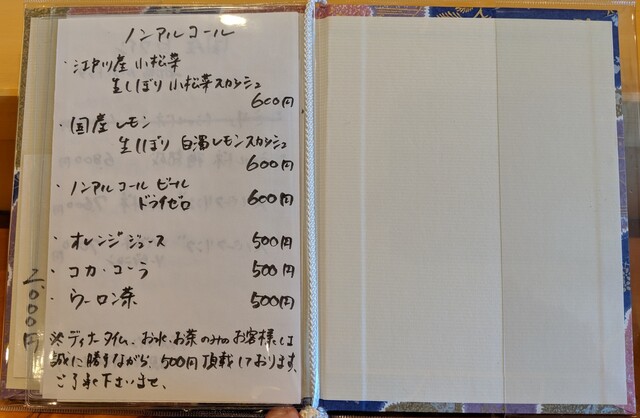 ノンアルコール
・江戸川産 小松菜
生しぼり 小松菜スカッシュ
600円
・国産レモン
生しぼり 白濁レモンスカッシュ
600円
・ノンアルコール ビール
ドライゼロ 600円
・オレンジジュース 500円
・コカ・コーラ 500円
・ウーロン茶 500円
※ディナータイム、お水、お茶のみのお客様は
誠に勝手ながら、500円頂戴しております、
ご了承下さいませ、
2,000円